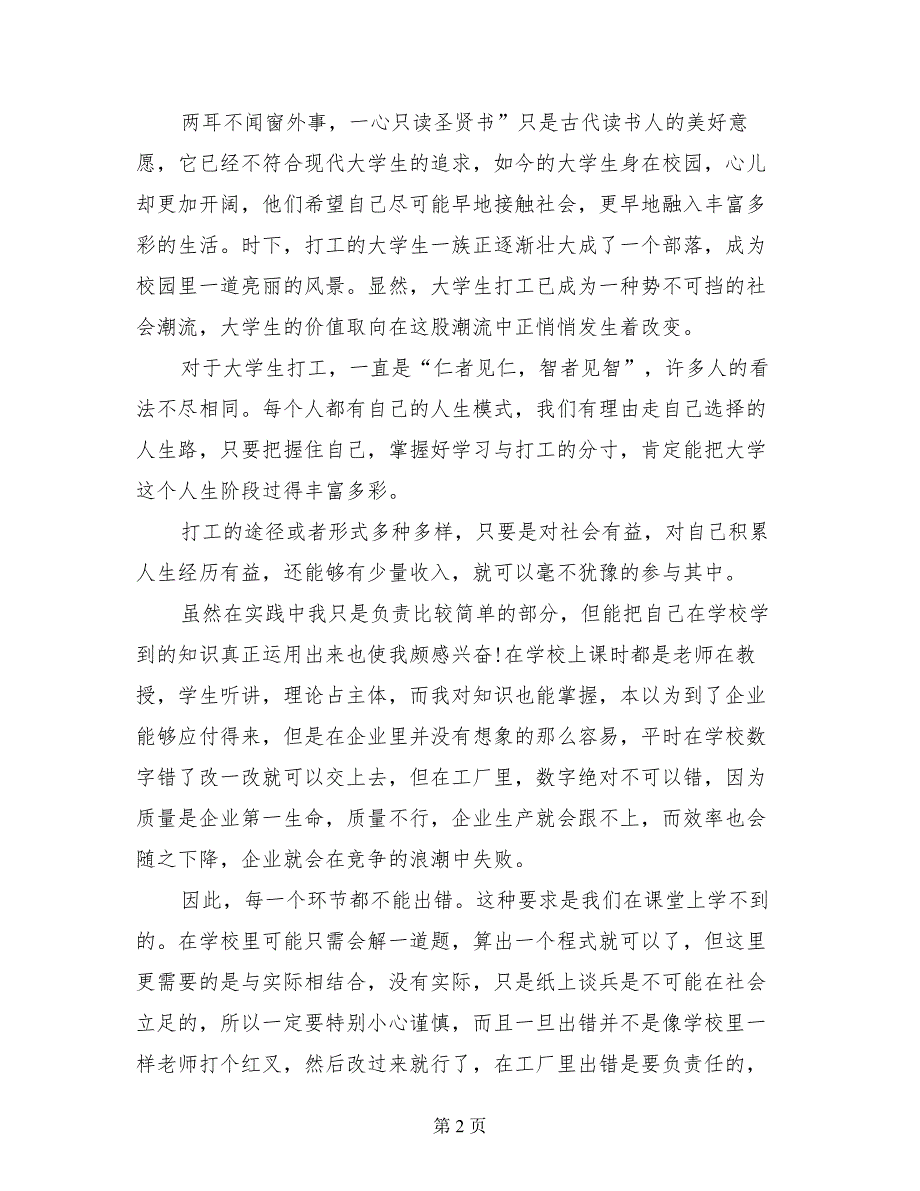 两耳不闻窗外事，一心只读圣贤书”只是古代读书人的美好意
愿，它已经不符合现代大学生的追求，如今的大学生身在校园，心儿
却更加开阔，他们希望自己尽可能早地接触社会，更早地融入丰富多
彩的生活。时下，打工的大学生一族正逐渐壮大成了一个部落，成为
校园里一道亮丽的风景。显然，大学生打工已成为一种势不可挡的社
会潮流，大学生的价值取向在这股潮流中正悄悄发生着改变。
对于大学生打工，一直是“仁者见仁，智者见智”，许多人的看
法不尽相同。每个人都有自己的人生模式，我们有理由走自己选择的
人生路，只要把握住自己，掌握好学习与打工的分寸，肯定能把大学
这个人生阶段过得丰富多彩。
打工的途径或者形式多种多样，只要是对社会有益，对自己积累
人生经历有益，还能够有少量收入，就可以毫不犹豫的参与其中。
虽然在实践中我只是负责比较简单的部分，但能把自己在学校学
到的知识真正运用出来也使我颇感兴奋!在学校上课时都是老师在教
授，学生听讲，理论占主体，而我对知识也能掌握，本以为到了企业
能够应付得来，但是在企业里并没有想象的那么容易，平时在学校数
字错了改一改就可以交上去，但在工厂里，数字绝对不可以错，因为
质量是企业第一生命，质量不行，企业生产就会跟不上，而效率也会
随之下降，企业就会在竞争的浪潮中失败。
因此，每一个环节都不能出错。这种要求是我们在课堂上学不到
的。在学校里可能只需会解一道题，算出一个程式就可以了，但这里
更需要的是与实际相结合，没有实际，只是纸上谈兵是不可能在社会
立足的，所以一定要特别小心谨慎，而且一旦出错并不是像学校里一
样老师打个红叉，然后改过来就行了，在工厂里出错是要负责任的，
第 2 页